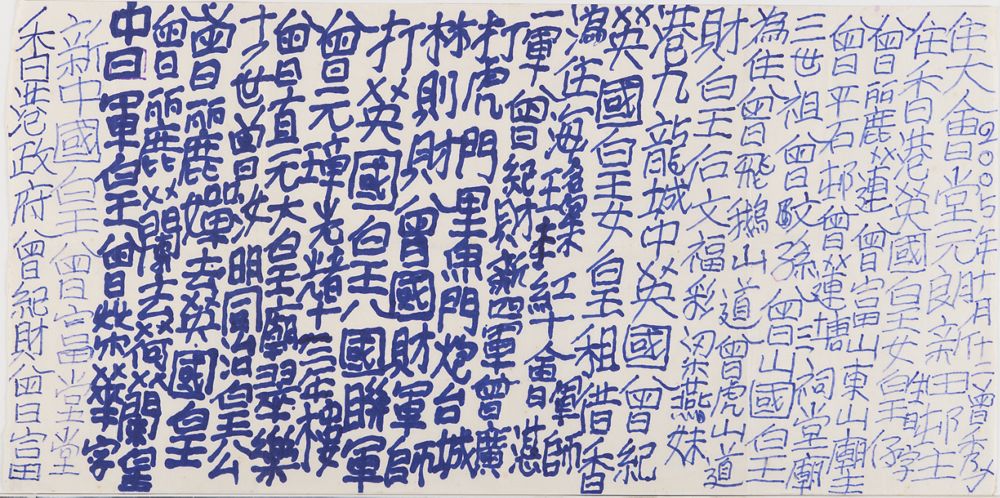 香港政府曾紀財曾富
新中國皇曾富堂堂
中日軍皇曾榮華字
曾麗關去荷蘭皇
曾麗嬋去英國皇
十世曾女明同治皇公
曾直元大皇廟翠樂
曾元璋光緒年三年樓
打英國皇八國聯軍
林則財曾國財軍師
打虎門里魚門炮台城
一軍曾紀財新四軍曾廣湛
為住海紅會軍師
英國皇女皇租借香
港九龍城中英國曾紀
財皇后文福彩梁燕妹
為住曾飛鵝山道曾虎山道
三世祖曾孫曾山國皇
曾平石邨曾蓮塘三祠堂廟
曾麗蓮曾富山東山廟
住香港英國皇女皇仔
住大會堂元良新田邨主
2005年財月什二曾秀